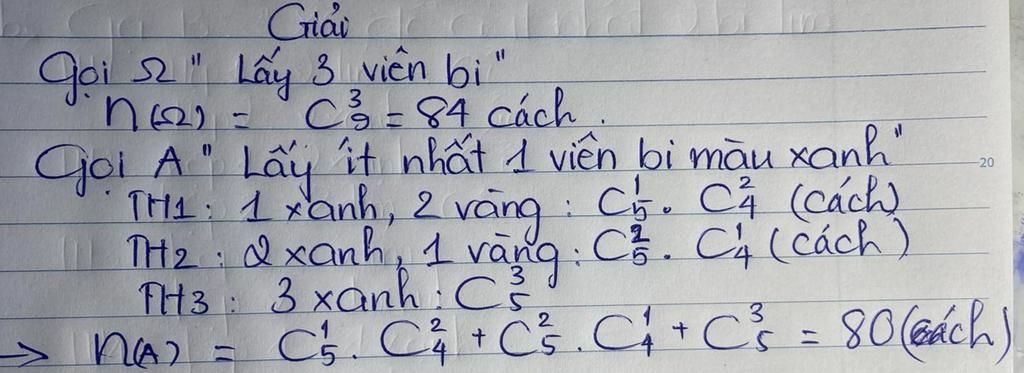 Giải
Gọi Ω " Lấy 3 viên bi "
n(Ω) = C₉³ = 84 cách .
Gọi A " Lấy ít nhất 1 viên bi màu xanh "
20
TH1 : 1 xanh, 2 vàng : C₅¹ . C₄² (cách)
TH2 : 2 xanh, 1 vàng : C₅² . C₄¹ (cách)
TH3 : 3 xanh : C₅³
→ n(A) = C₅¹ . C₄² + C₅² . C₄¹ + C₅³ = 80 (cách)